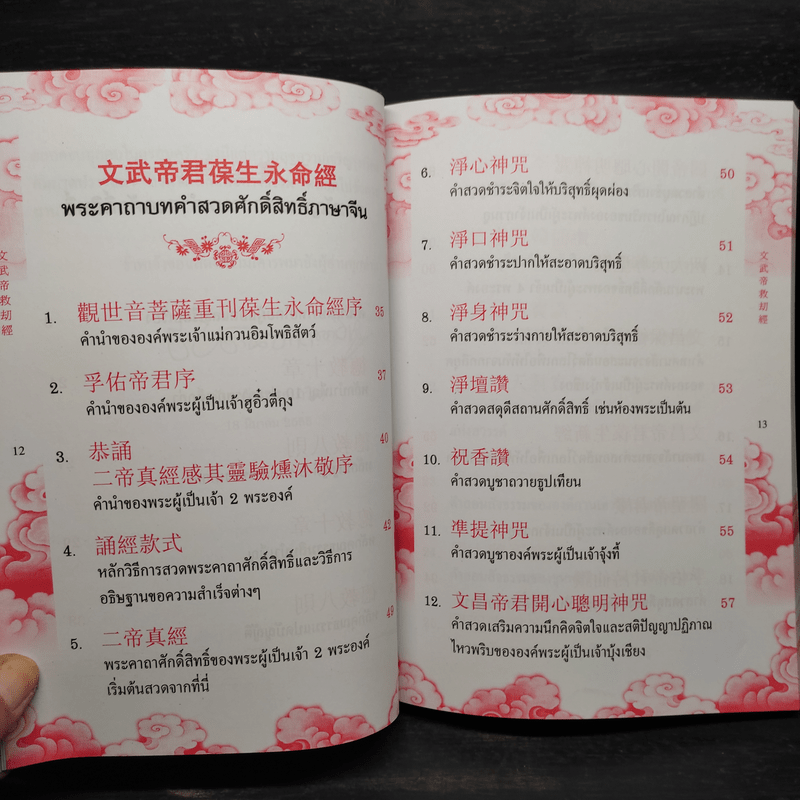 文武帝君葆生永命經
พระคาถาบทคำสวดศักดิ์สิทธิ์ภาษาจีน
1. 觀世音菩薩重刊葆生永命經序 35
คำนำขององค์พระเจ้าแม่กวนอิมโพธิสัตว์
2. 孚佑帝君序 37
คำนำขององค์พระผู้เป็นเจ้าฮูอิ๋วตี่กุง
3. 恭誦 40
二帝真經感其靈驗燻沐敬序
คำนำของพระผู้เป็นเจ้า 2 พระองค์
4. 誦經款式 42
หลักวิธีการสวดพระคาถาศักดิ์สิทธิ์และวิธีการ
อธิษฐานขอความสำเร็จต่างๆ
5. 二帝真經 49
พระคาถาศักดิ์สิทธิ์ของพระผู้เป็นเจ้า 2 พระองค์
เริ่มต้นสวดจากที่นี่
文武帝救劫經
12
6. 淨心神咒 50
คำสวดชำระจิตใจให้บริสุทธิ์ผุดผ่อง
7. 淨口神咒 51
คำสวดชำระปากให้สะอาดบริสุทธิ์
8. 淨身神咒 52
คำสวดชำระร่างกายให้สะอาดบริสุทธิ์
9. 淨壇讚 53
คำสวดสดุดีสถานศักดิ์สิทธิ์ เช่นห้องพระเป็นต้น
10. 祝香讚 54
คำสวดบูชาถวายธูปเทียน
11. 準提神咒 55
คำสวดบูชาองค์พระผู้เป็นเจ้าจุ้งที้
12. 文昌帝君開心聰明神咒 57
คำสวดเสริมความนึกคิดจิตใจและสติปัญญาปฏิภาณ
ไหวพริบขององค์พระผู้เป็นเจ้าบุ้งเชียง
文武帝救劫經
13